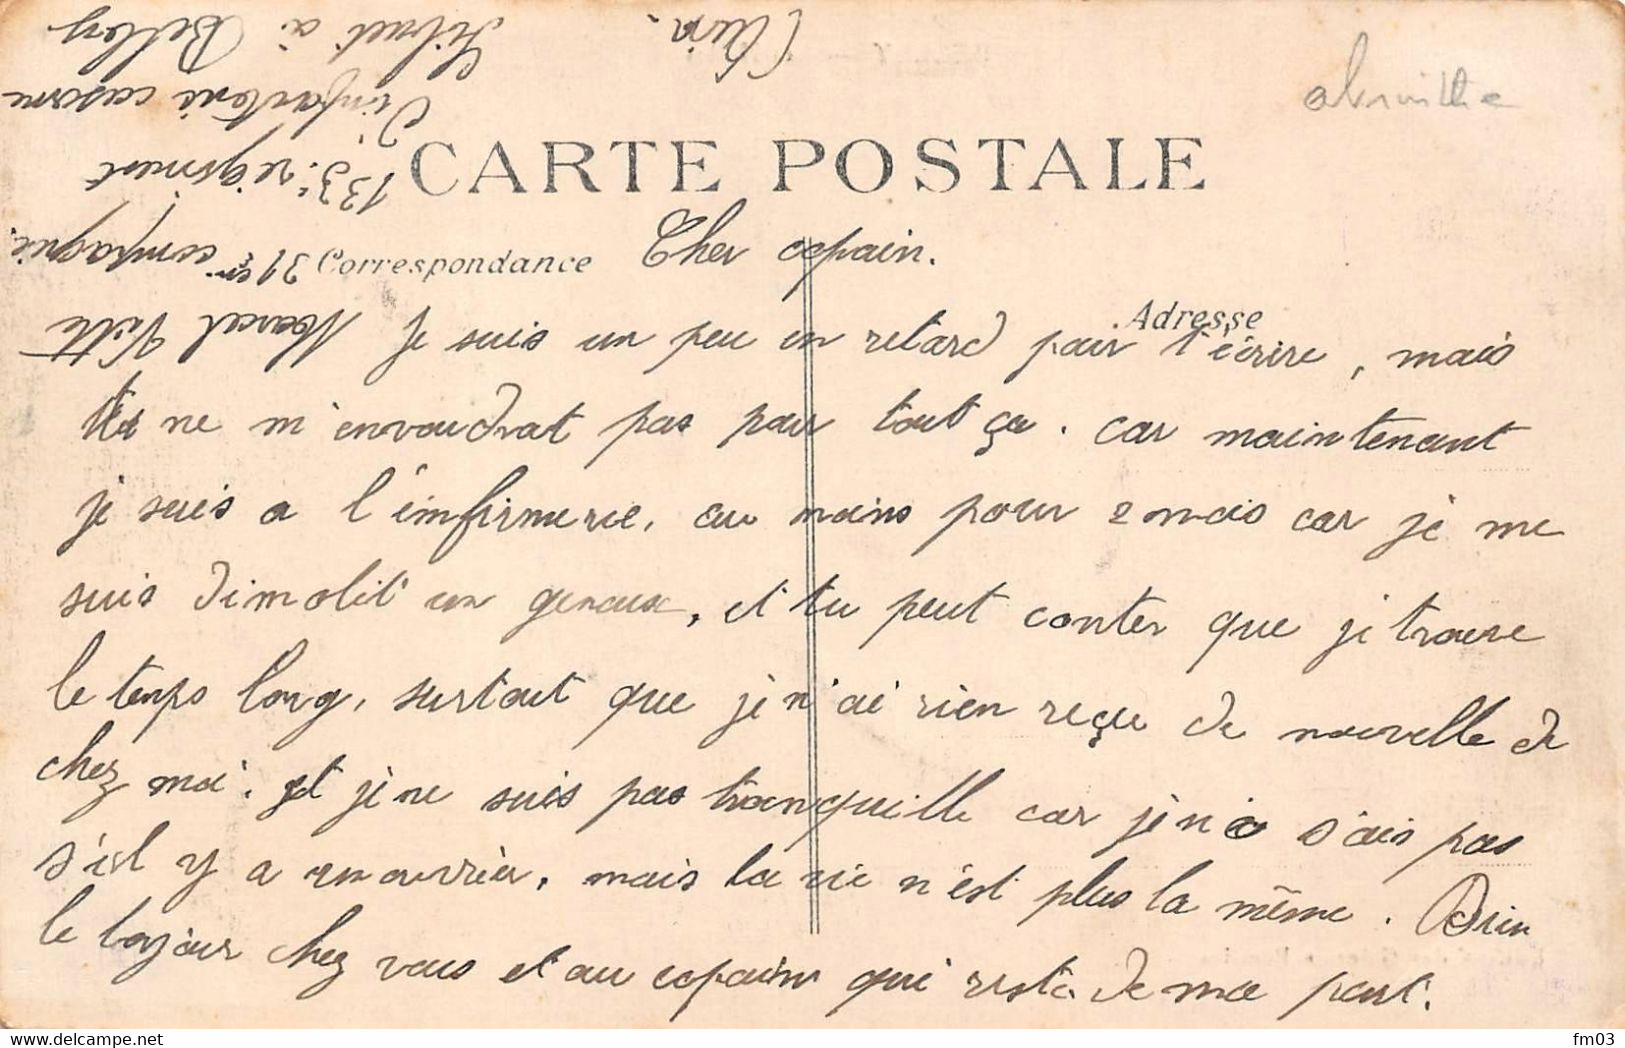 CARTE POSTALE
Correspondance
Cher copain.
Adresse
Je suis un peu en retard pour t'écrire, mais
tu ne m'envoudrat pas pour tout ça. car maintenant
je suis a l'émfirmerie, au moins pour 2 mois car je me
suis dimolit un genoux, et tu peut conter que je trouve
le temps long, surtout que je n'ai rien reçu de nouvelle de
chez moi. et je ne suis pas tranquille car je n'a s'ais pas
s'ist y a un ouvrier, mais la vie n'est plus la même. Bien
le bonjour chez vous et au copains qui reste de ma part.
Marcel
31em compagnie.
133e régiment
d'infanterie caserne
Sibuet à Belley
(Ain.
fm03